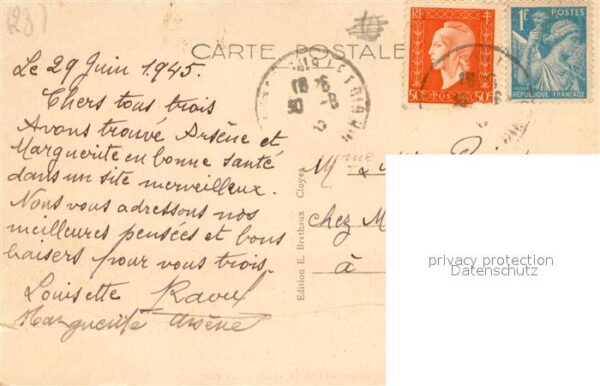 CARTE POSTALE
Le 29 Juin 1945.
Chers tous trois
Avons trouvé Arsène et
Marguerite en bonne santé
dans un site merveilleux.
Nous vous adressons nos
meilleures pensées et bons
baisers pour vous trois.
Louisette Raoul
Marguerite Arsène
Edition E. Brethaux Cloyes
RF
50c POSTES 50c
1F POSTES
REPUBLIQUE FRANÇAISE
18 16
30 -6
Mme
chez M
à
privacy protection
Datenschutz